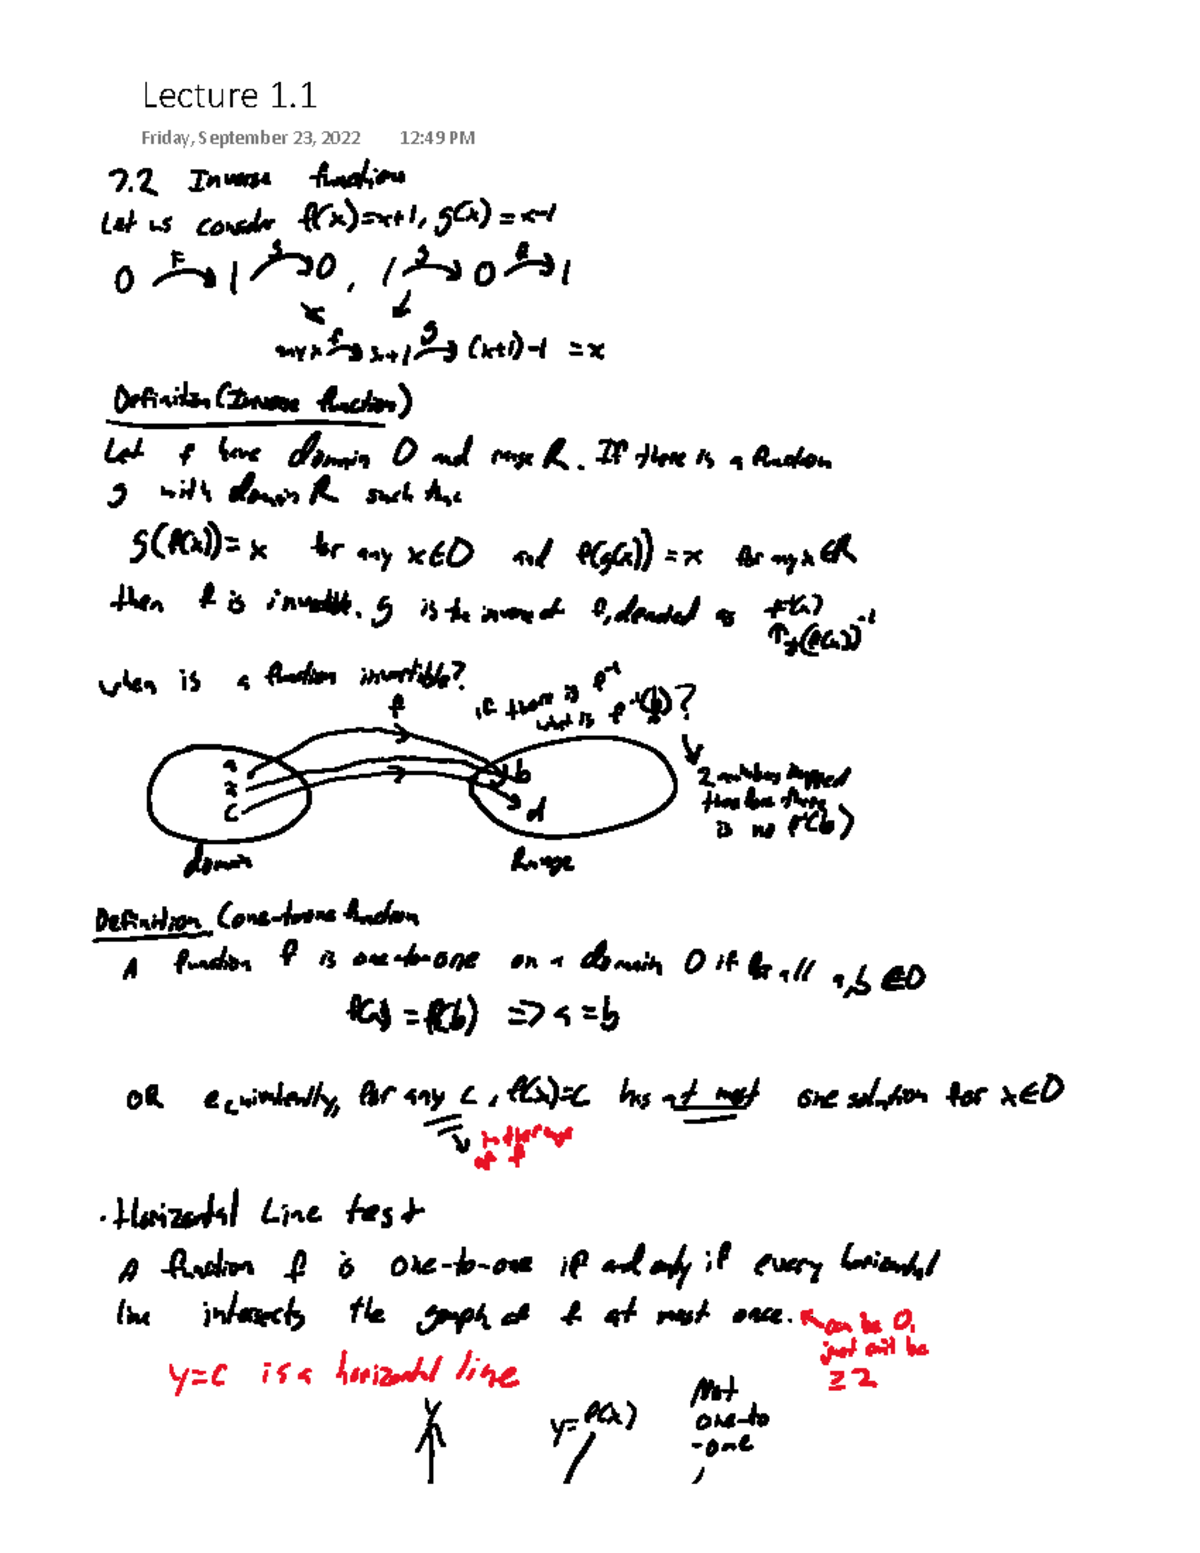 Lecture 1.1
Friday, September 23, 2022 12:49 PM
7.2 Inverse functions
Let us consider f(x)=x+1, g(x)=x-1
0 F 1 g 0, 1 g 0 f 1
any x f x+1 g (x+1)-1 = x
Definition (Inverse function)
Let f have domain D and range R. If there is a function
g with domain R such that
g(f(x))=x for any x∈D and f(g(x))=x for any x∈R
then f is invertible. g is the inverse of f, denoted as f⁻¹(x)
↑≠(f(x))⁻¹
When is a function invertible?
if there is f⁻¹
what is f⁻¹(b)?
f
a
b
c
d
2 numbers mapped
therefore there
is no f⁻¹(b)
domain
Range
Definition (one-to-one function
A function f is one-to-one on a domain D if for all a,b ∈D
f(a) = f(b) => a = b
OR equivalently, for any c, f(x)=c has at most one solution for x∈D
in the range
of f
· Horizontal Line test
A function f is one-to-one if and only if every horizontal
line intersects the graph of f at most once.
can be 0,
just can't be
≥2
y=c is a horizontal line
y
y=f(x)
Not
one-to
-one